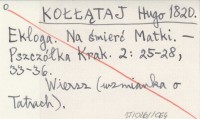 KOŁŁĄTAJ Hugo 1820.
Ekloga. Na śmierć Matki. —
Pszczółka Krak. 2: 25-28,
33-36.
Wiersz (wzmianka o
Tatrach).